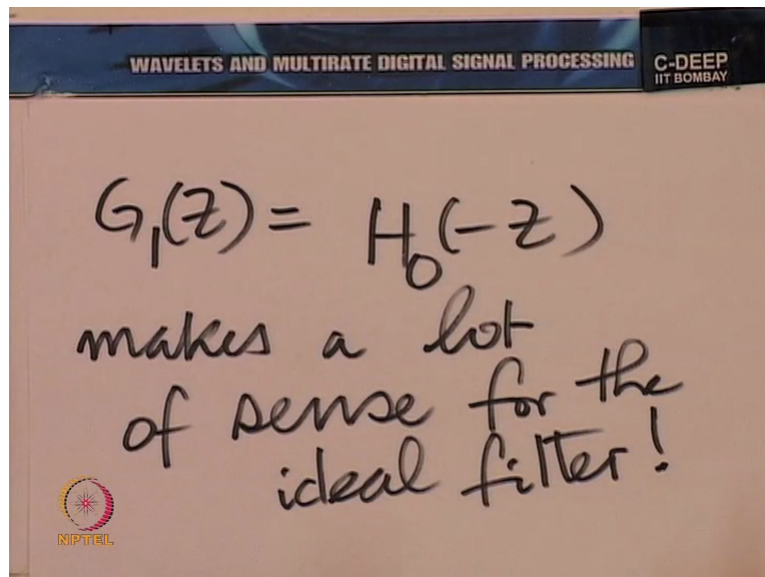 WAVELETS AND MULTIRATE DIGITAL SIGNAL PROCESSING
C-DEEP
IIT BOMBAY
G₁(Z) = H₀(-Z)
makes a lot
of sense for the
ideal filter!
NPTEL